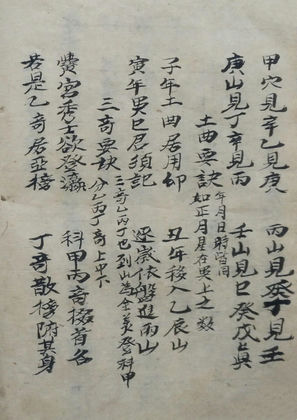 甲穴見辛乙見庚 丙山見癸丁見壬
庚山見丁辛見丙 壬山見巳癸戊真
土曲要訣 年月日時皆同
如正月星在巽上之數
子年土曲居用卯 丑年移入乙辰山
寅年巽巳君須記 逐歲依盤進兩山
三奇要訣 三奇乙丙丁也到山為全美登科甲
分乙丙丁奇上中下
宮秀士欲登瀛 科甲丙奇掇首名
若是乙奇居亞榜 丁奇散榜附其身